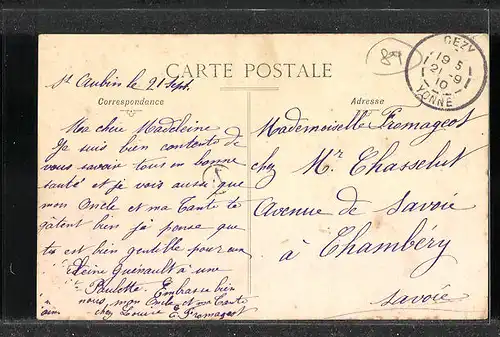 CEZY
19 5
21 - 9
10
YONNE
89
St Aubin le 21 Sept.
CARTE POSTALE
Correspondance
Adresse
Ma chère Madeleine
Je suis bien contente de
vous savoir tous en bonne
santé et je vois aussi que
mon Oncle et ma Tante te
gâtent bien j'ai pense que
tu es bien gentille pour eux
Guenault a une
Paulette. Embrasse bien
nous, mon Oncle et ma Tante
chez Louise E. Fromageot
Mademoiselle Fromageot
chez Mr Chasselut
Avenue de Savoie
à Chambéry
Savoie